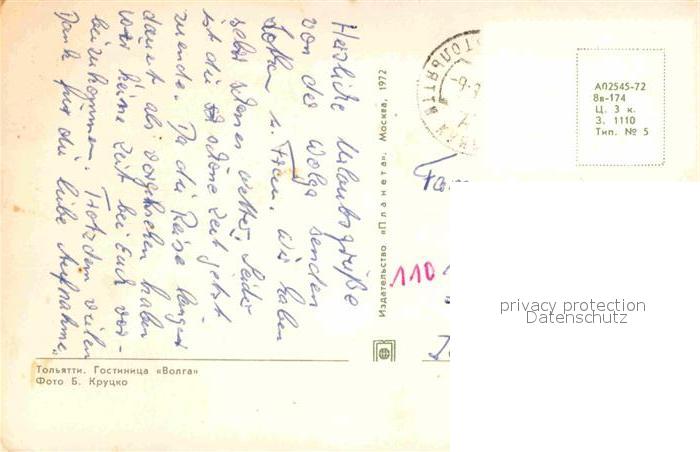 Herzliche Urlaubsgrüße
von der Wolga senden
u. Frau. Wir haben
sehr schönes Wetter. Leider
ist die schöne Zeit jetzt
zu ende. Da die Reise länger
dauert als vorgesehen haben
wir keine Zeit bei Euch vor-
beizukommen. Trotzdem vielen
Dank für die liebe Aufnahme.
Тольятти. Гостиница «Волга»
Фото Б. Круцко
Издательство «Планета». Москва, 1972
110
АП2545-72
8в-174
Ц. 3 к.
З. 1110
Тип. № 5
privacy protection
Datenschutz